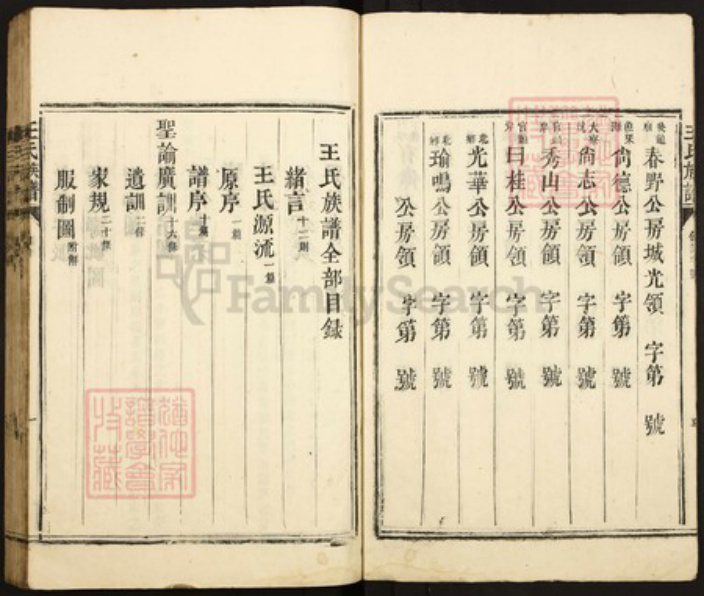 春野公房城光領 字第 號
尚德公房領 字第 號
尚志公房領 字第 號
秀山公房領 字第 號
曰桂公房領 字第 號
光華公房領 字第 號
瑜鳴公房領 字第 號
公房領 字第 號
王氏族譜
王氏族譜全部目録
緒言十二則
王氏源流一篇
原序一篇
譜序十篇
聖諭廣訓十六條
遺訓二條
家規二十條
服制圖附例
王氏族譜
FamilySearch